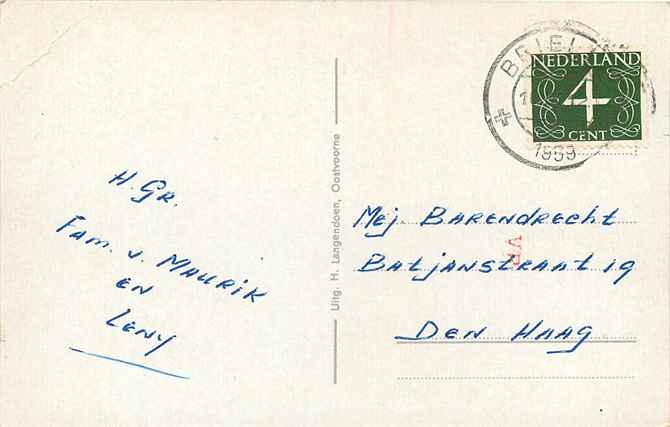 BRIEL
NEDERLAND
4
CENT
1959
H. GR.
FAM. v. MAURIK
EN
LENY
Uitg. H. Langendoen, Oostvoorne
MEJ. BARENDRECHT
BATJANSTRAAT 19
DEN HAAG